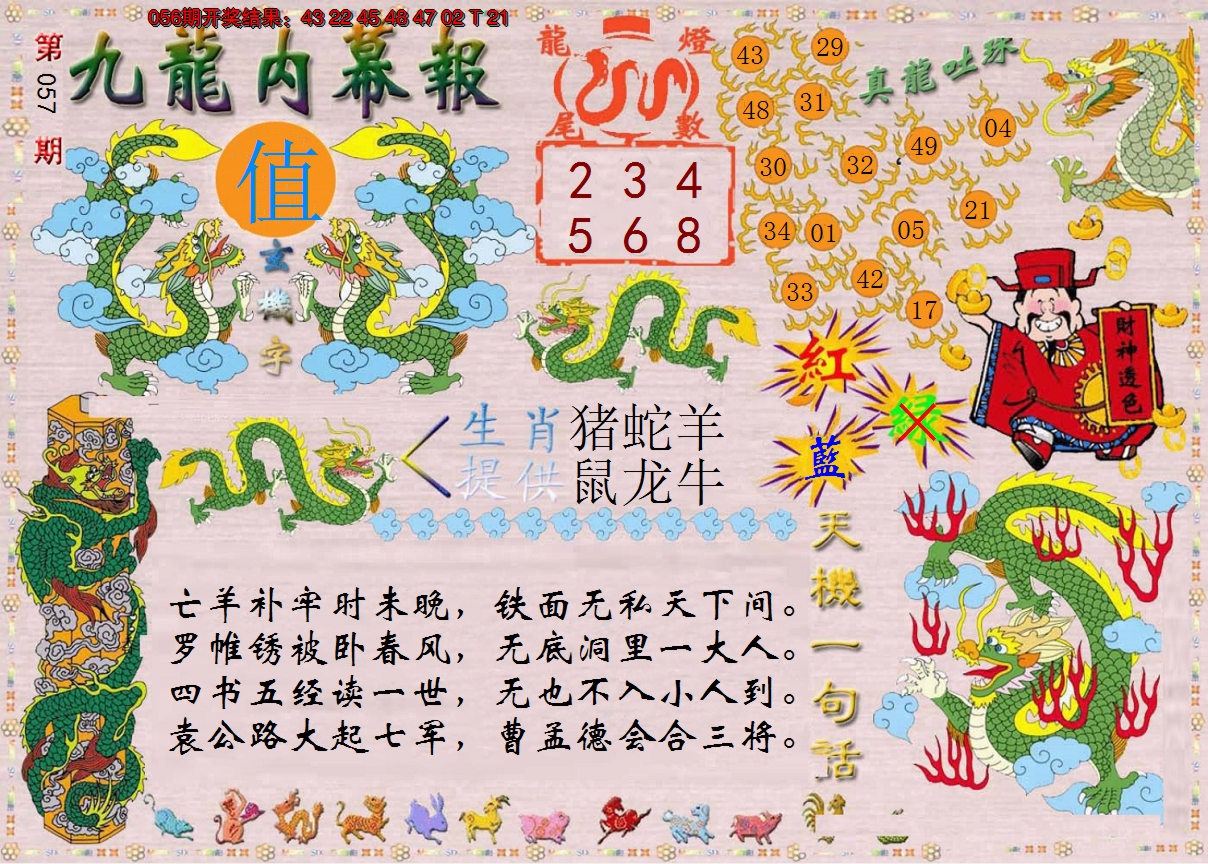 056期开奖结果：43 22 45 48 47 02 T 21
第057期
九龍内幕報
值
玄機字
龍燈
尾數
2 3 4
5 6 8
真龍吐珠
43 29
48 31
30 32 49 04
34 01 05 21
33 42 17
紅
绿
藍
財神透色
生肖提供
猪蛇羊
鼠龙牛
天機一句話
亡羊补牢时未晚，铁面无私天下间。
罗帷锈被卧春风，无底洞里一大人。
四书五经读一世，无也不入小人到。
袁公路大起七军，曹孟德会合三将。